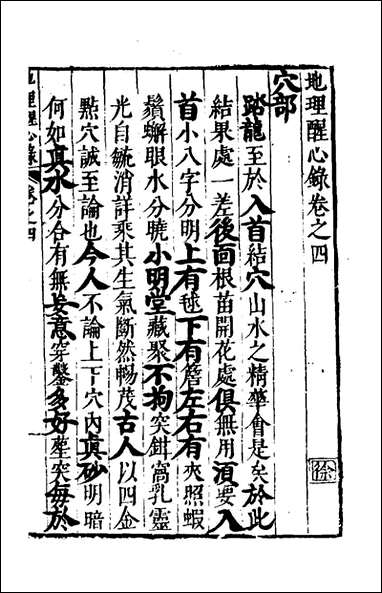 地理醒心錄卷之四
穴部
踏龍至於入首結穴山水之精華會是矣於此
結果處一差後面根苗開花處俱無用湏要入
首小八字分明上有毬下有簷左右有夾照蝦
鬚蠏眼水分曉小明堂藏聚不拘突鉗窩乳靈
光自
消詳乘其生氣斷然暢茂古人以四金
點穴誠至論也今人不論上下穴內眞砂明暗
何如眞水分合有無妄意穿鑿多好塟突每於
徐
地理醒心錄 卷之四